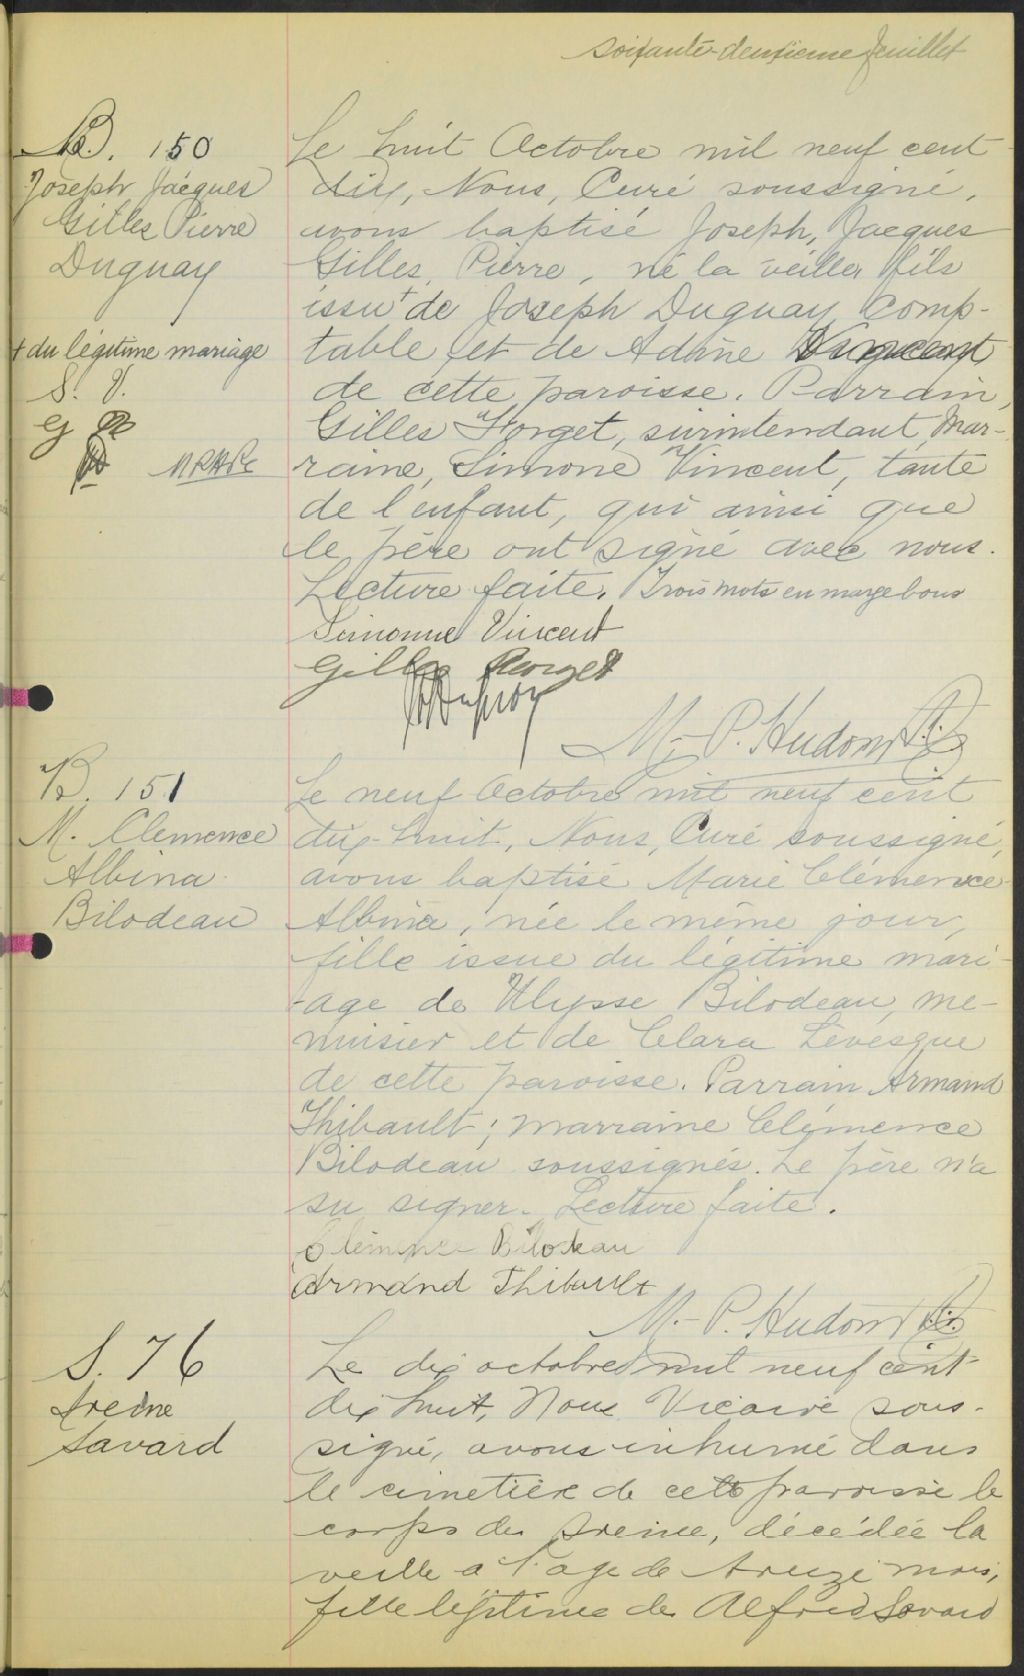 soixante-deuxième feuillet
B. 150
Joseph Jacques
Gilles Pierre
Duguay
+ du légitime mariage
S. V.
G
Le huit Octobre mil neuf cent
dix, Nous, Curé soussigné,
avons baptisé Joseph, Jacques
Gilles, Pierre, né la veille, fils
issu + de Joseph Duguay, Comp-
table et de Adine Vincent
de cette paroisse. Parrain,
Gilles Forget, surintendant, Mar-
raine, Simone Vincent, tante
de l'enfant, qui ainsi que
le père ont signé avec nous.
Lecture faite. Trois mots en marge bons
Simonne Vincent
Gilles Forget
M.-P. Hudon, Ptre
B. 151
M. Clemence
Albina
Bilodeau
Le neuf Octobre mil neuf cent
dix-huit, Nous, Curé soussigné,
avons baptisé Marie Clémence
Albina, née le même jour,
fille issue du légitime mari-
-age de Ulysse Bilodeau, me-
nuisier et de Clara Lévesque
de cette paroisse. Parrain Armand
Thibault; marraine Clémence
Bilodeau soussignés. Le père n'a
su signer. Lecture faite.
Clémence Bilodeau
Armand Thibault
M.-P. Hudon, Ptre
S. 76
Ireine
Savard
Le dix octobre mil neuf cent
dix huit, Nous Vicaire sous-
signé, avons inhumé dans
le cimetière de cette paroisse le
corps de Ireine, décédée la
veille a l'age de treize mois,
fille légitime de Alfred Savard